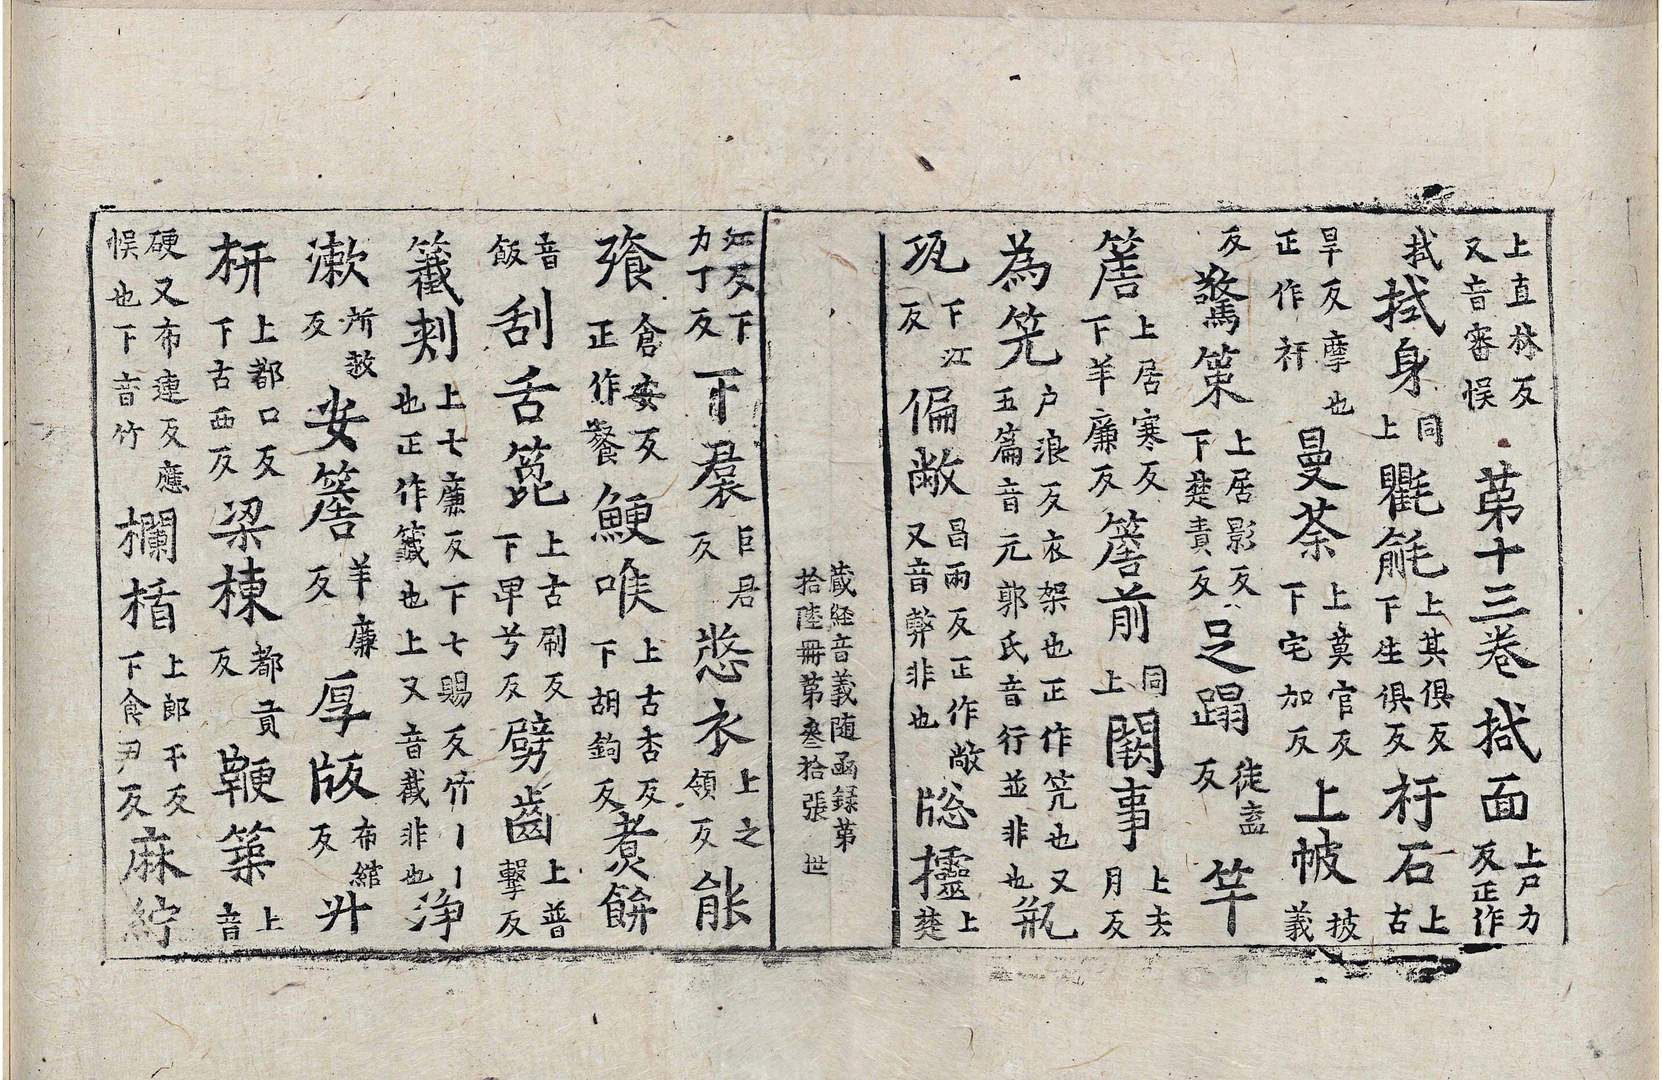 上直林反又音審悮 第十三卷 拭面上尸力反正作
拭 拭身同上 氍毹上其俱反下生俱反 杅石上古
旱反摩也正作衦 曼荼上莫官反下宅加反 上帔披義
反 驚策上居影反下楚責反 足蹋徒盍反 竿
簷上居寒反下羊廉反 簷前同上 闕事上去月反
為笐户浪反衣架也正作笐也又五篇音元郭氏音行並非也 瓨
瓨下江反 偏敞昌兩反正作敞又音弊非也 牎櫺上楚
藏経音義随函録第
拾陸冊第叄拾張 世
江反下力丁反 下裠巨君反 憗衣上之領反 能
飡倉安反正作餐 鯁唯上古杏反下胡鉤反 煮餅
音飯 刮舌篦上古刷反下卑兮反 劈齒上普擊反
籤刾上七廉反下七賜反竹丨丨也正作籤也上又音截非也 浄
漱所救反 安簷羊廉反 厚版布綰反 廾
枅上都口反下古西反 梁棟都貢反 鞕築上音
硬又布連反應悮也下音竹 欄楯上郎干反下食尹反 麻紵